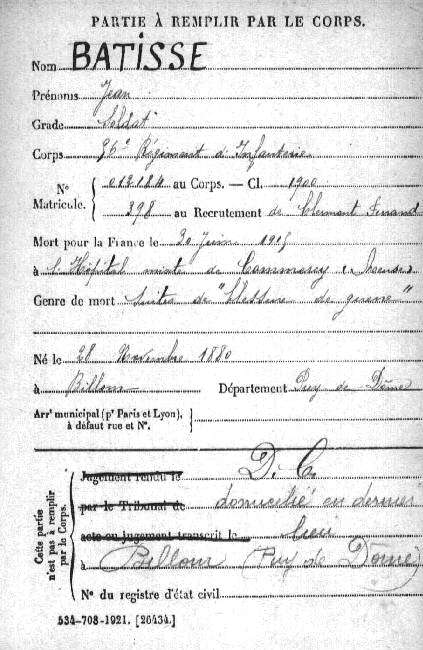 PARTIE À REMPLIR PAR LE CORPS.
Nom BATISSE
Prénoms Jean
Grade Soldat
Corps Régiment d'Infanterie
N° Matricule. au Corps. — Cl. 1900
398 au Recrutement de Clermont Ferrand
Mort pour la France le 30 Juin 1915
à l'Hôpital mixte de Commercy (Meuse)
Genre de mort Suites de "blessure de guerre"
Né le 28 Novembre 1880
à Billom Département Puy de Dôme
Arrt municipal (pr Paris et Lyon), à défaut rue et N°.
Jugement rendu le D. C.
par le Tribunal de domicilié en dernier
acte ou jugement transcrit le lieu
à Billom (Puy de Dôme)
N° du registre d'état civil
Cette partie n'est pas à remplir par le Corps.
534-708-1921. [26434.]